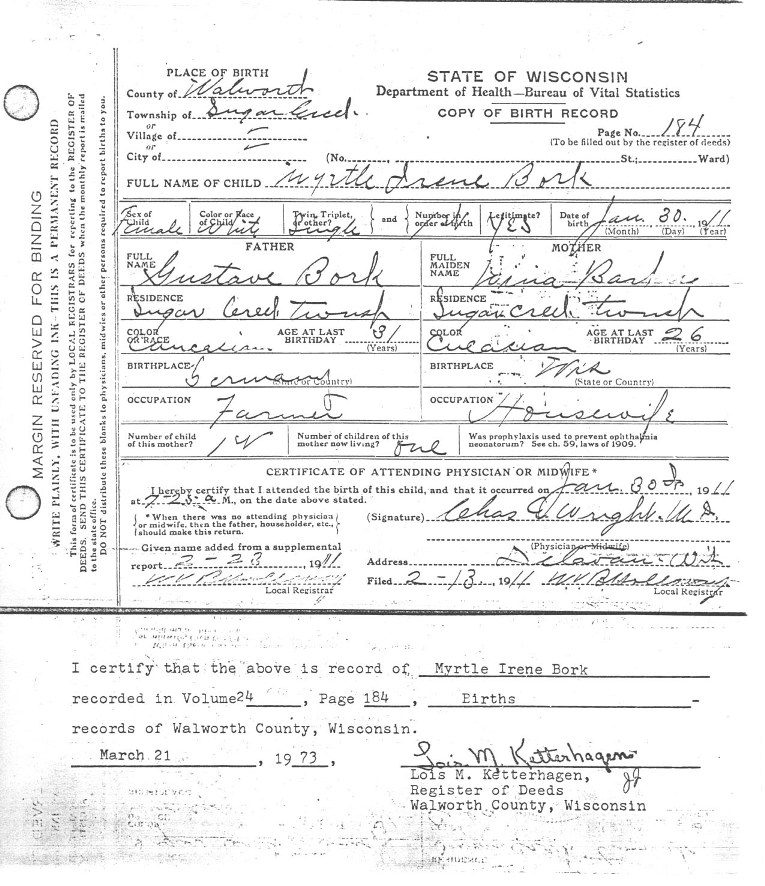 PLACE OF BIRTH
County of Walworth
Township of Sugar Creek
or
Village of
or
City of
STATE OF WISCONSIN
Department of Health—Bureau of Vital Statistics
COPY OF BIRTH RECORD
Page No. 184
(To be filled out by the register of deeds)
(No. , St.; Ward)
FULL NAME OF CHILD Myrtle Irene Bork
Sex of Child Female
Color or Race of Child White
Twin, Triplet, or other? Single
and
Number in order of birth
Legitimate? YES
Date of birth Jan. 30. 1911
(Month) (Day) (Year)
FATHER
FULL NAME Gustave Bork
RESIDENCE Sugar Creek Twnsp
COLOR OR RACE Caucasian
AGE AT LAST BIRTHDAY 31
(Years)
BIRTHPLACE Germany
(State or Country)
OCCUPATION Farmer
MOTHER
FULL MAIDEN NAME
RESIDENCE Sugar Creek Twnsp
COLOR OR RACE Cucasian
AGE AT LAST BIRTHDAY 26
(Years)
BIRTHPLACE Wis
(State or Country)
OCCUPATION Housewife
Number of child of this mother? 1
Number of children of this mother now living? one
Was prophylaxis used to prevent ophthalmia neonatorum? See ch. 59, laws of 1909.
CERTIFICATE OF ATTENDING PHYSICIAN OR MIDWIFE*
I hereby certify that I attended the birth of this child, and that it occurred on Jan. 30th, 1911
at 7-25-a M., on the date above stated.
* When there was no attending physician
or midwife, then the father, householder, etc.,
should make this return.
(Signature) Chas E. Wright. M.D.
(Physician or Midwife)
Given name added from a supplemental
report 2-23, 1911
Local Registrar
Address Delavan - Wis
Filed 2-13, 1911
Local Registrar
MARGIN RESERVED FOR BINDING
WRITE PLAINLY, WITH UNFADING INK—THIS IS A PERMANENT RECORD
This form of certificate is to be used only by LOCAL REGISTRARS for reporting to the REGISTER OF
DEEDS. SEND THIS CERTIFICATE TO THE REGISTER OF DEEDS when the monthly report is mailed
to the state office.
DO NOT distribute these blanks to physicians, midwives or other persons required to report births to you.
I certify that the above is record of Myrtle Irene Bork
recorded in Volume24 , Page 184 , Births -
records of Walworth County, Wisconsin.
March 21 , 1973,
Lois M. Ketterhagen
Lois M. Ketterhagen, JJ
Register of Deeds
Walworth County, Wisconsin